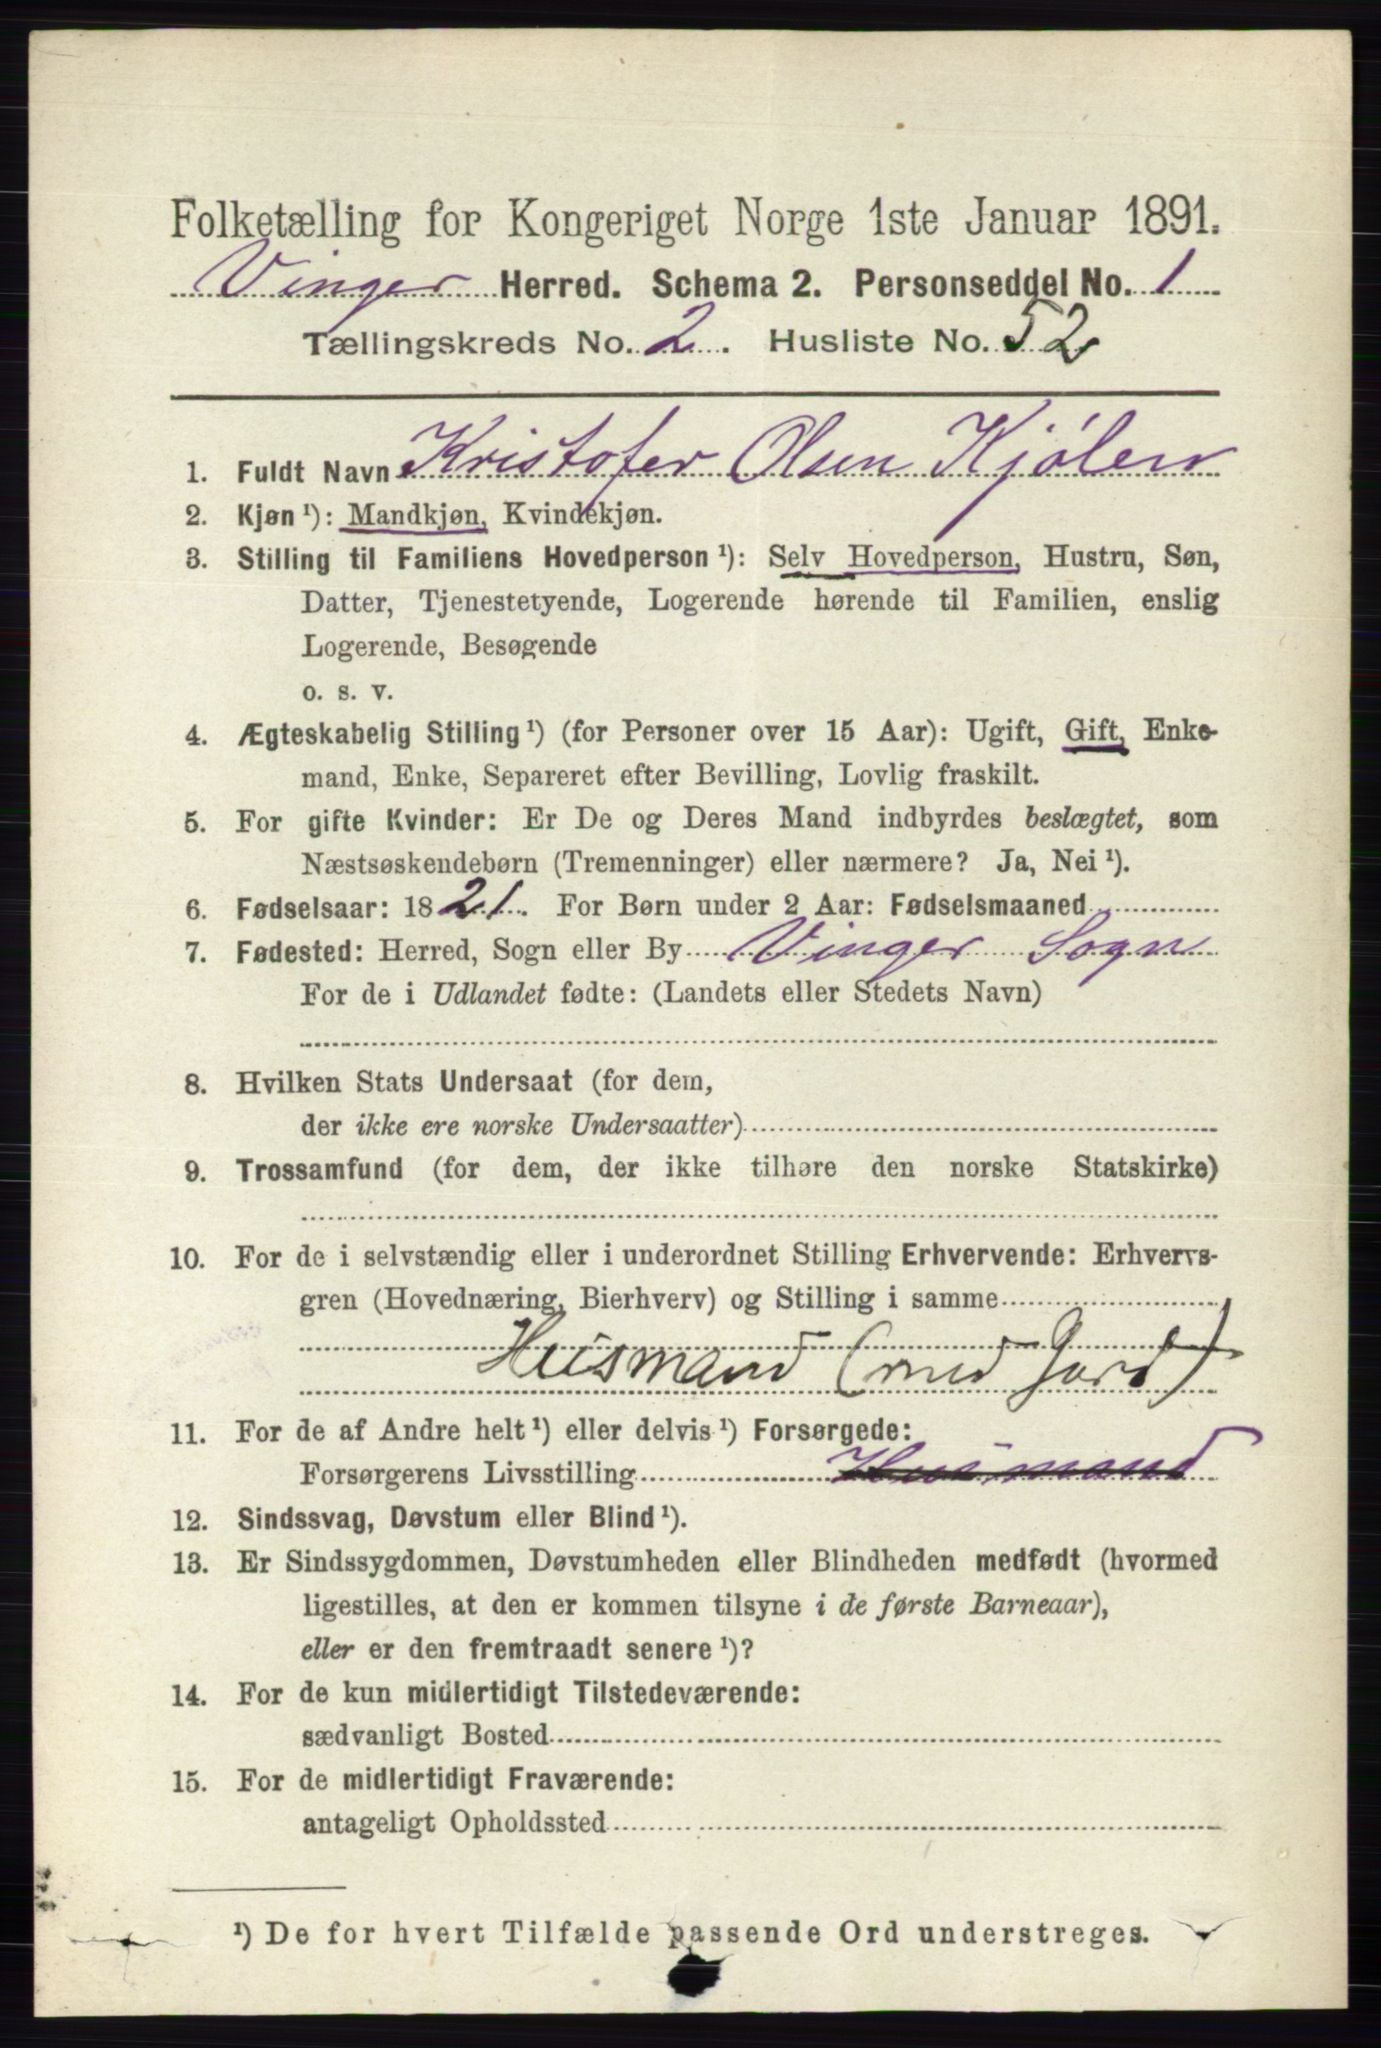 Folketælling for Kongeriget Norge 1ste Januar 1891.
Vinger Herred. Schema 2. Personseddel No. 1
Tællingskreds No. 2. Husliste No. 52
1. Fuldt Navn Kristofer Olsen Kjölen
2. Kjøn ¹): Mandkjøn, Kvindekjøn.
3. Stilling til Familiens Hovedperson ¹): Selv Hovedperson, Hustru, Søn,
Datter, Tjenestetyende, Logerende hørende til Familien, enslig
Logerende, Besøgende
o. s. v.
4. Ægteskabelig Stilling ¹) (for Personer over 15 Aar): Ugift, Gift, Enke-
mand, Enke, Separeret efter Bevilling, Lovlig fraskilt.
5. For gifte Kvinder: Er De og Deres Mand indbyrdes beslægtet, som
Næstsøskendebørn (Tremenninger) eller nærmere? Ja, Nei ¹).
6. Fødselsaar: 1821. For Børn under 2 Aar: Fødselsmaaned
7. Fødested: Herred, Sogn eller By Vinger Sogn
For de i Udlandet fødte: (Landets eller Stedets Navn)
8. Hvilken Stats Undersaat (for dem,
der ikke ere norske Undersaatter)
9. Trossamfund (for dem, der ikke tilhøre den norske Statskirke)
10. For de i selvstændig eller i underordnet Stilling Erhvervende: Erhvervs-
gren (Hovednæring, Bierhverv) og Stilling i samme
Huismand (med Jord)
11. For de af Andre helt ¹) eller delvis ¹) Forsørgede:
Forsørgerens Livsstilling Husmand
12. Sindssvag, Døvstum eller Blind ¹).
13. Er Sindssygdommen, Døvstumheden eller Blindheden medfødt (hvormed
ligestilles, at den er kommen tilsyne i de første Barneaar),
eller er den fremtraadt senere ¹)?
14. For de kun midlertidigt Tilstedeværende:
sædvanligt Bosted
15. For de midlertidigt Fraværende:
antageligt Opholdssted
¹) De for hvert Tilfælde passende Ord understreges.